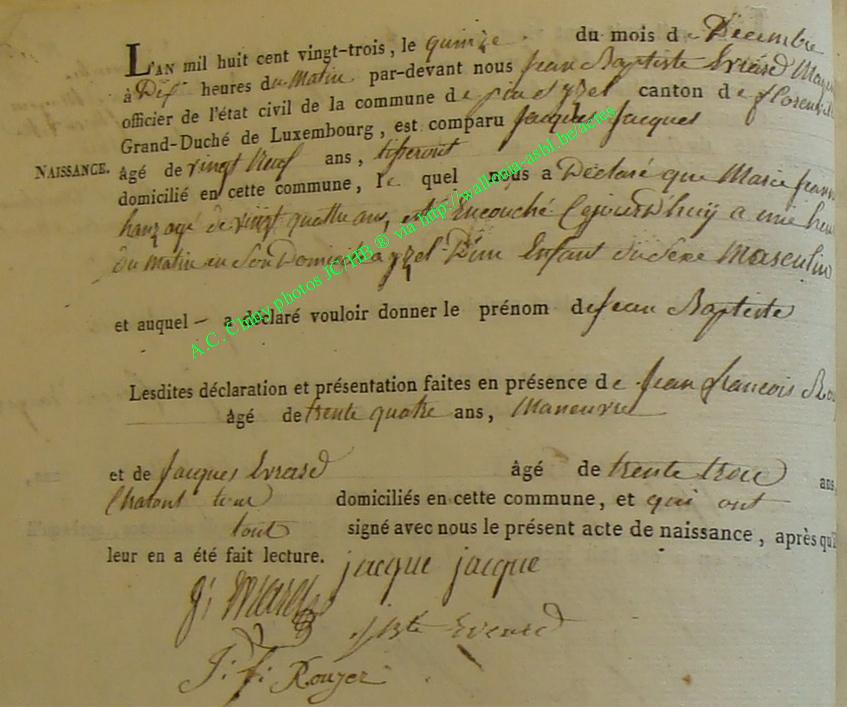 L'AN mil huit cent vingt-trois, le quinze du mois de Décembre
à Dix heures du Matin par-devant nous Jean Baptiste Evrard
officier de l'état civil de la commune de canton de florenville
Grand-Duché de Luxembourg, est comparu Jacques Jacques
NAISSANCE.
âgé de vingt Neuf ans, tisserant
domicilié en cette commune, le quel nous a Déclaré que Marie
agé de vingt quattre ans, est Encouché Cejourd'huy a une
du Matin en Son Domicil a yzel D'un Enfant du Sexe Masculin
et auquel — a déclaré vouloir donner le prénom de Jean Baptiste
Lesdites déclaration et présentation faites en présence de Jean francois
âgé de trente quatre ans, Maneuvre
et de Jacques Evrard âgé de trente trois ans
domiciliés en cette commune, et qui ont
tout signé avec nous le présent acte de naissance, après qu'il
leur en a été fait lecture.
jacque jacque
Evrard
J: f: Rouyer
A.C. Chiny photos JC/HB ® via http://wallonia-asbl.be/actes